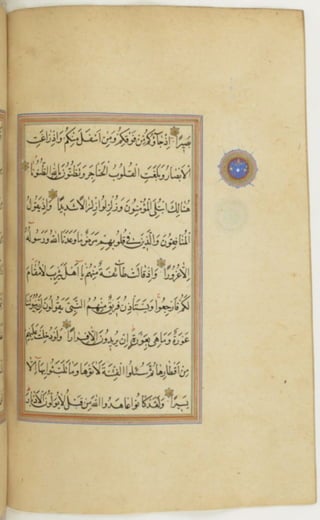 بصيرا اذ جاؤكم من فوقكم ومن اسفل منكم واذ زاغت
الابصار وبلغت القلوب الحناجر وتظنون بالله الظنونا
هنالك ابتلي المؤمنون وزلزلوا زلزالا شديدا واذ يقول
المنافقون والذين في قلوبهم مرض ما وعدنا الله ورسوله
الا غرورا واذ قالت طائفة منهم يا اهل يثرب لا مقام
لكم فارجعوا ويستأذن فريق منهم النبي يقولون ان بيوتنا
عورة وما هي بعورة ان يريدون الا فرارا ولو دخلت عليهم
من اقطارها ثم سئلوا الفتنة لآتوها وما تلبثوا بها الا
يسيرا ولقد كانوا عاهدوا الله من قبل لا يولون الادبار